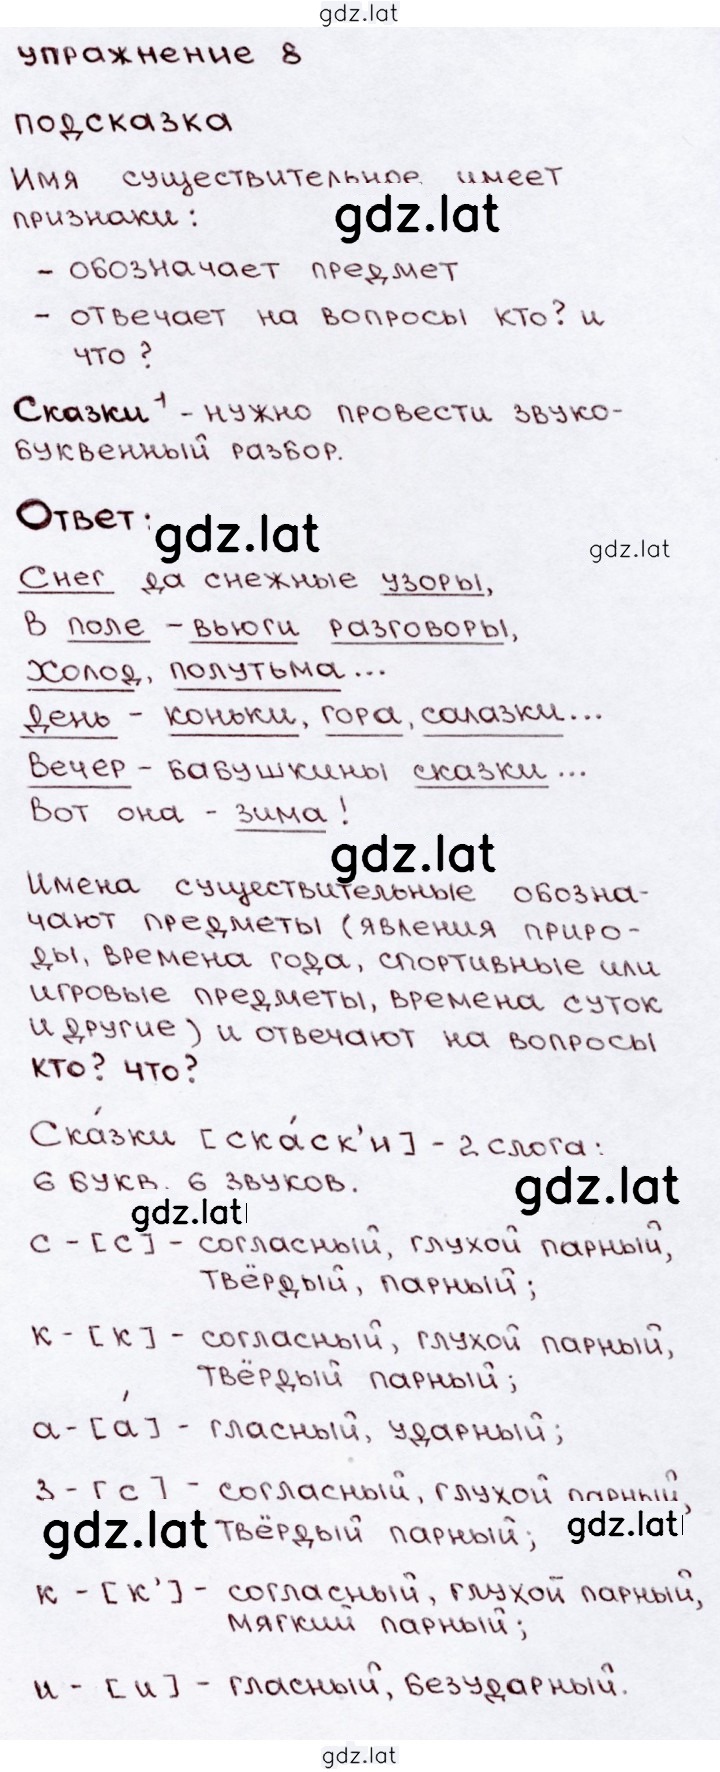 gdz.lat
упражнение 8
подсказка
Имя существительное имеет
gdz.lat
признаки:
- обозначает предмет
- отвечает на вопросы кто? и
что?
Сказки¹ - нужно провести звуко-
буквенный разбор.
Ответ:
gdz.lat
gdz.lat
Снег да снежные узоры,
В поле - вьюги разговоры,
Холод, полутьма...
День - коньки, гора, салазки...
Вечер - бабушкины сказки...
Вот она - зима!
gdz.lat
Имена существительные обозна-
чают предметы (явления приро-
ды, времена года, спортивные или
игровые предметы, времена суток
и другие) и отвечают на вопросы
кто? что?
Ска́зки [ска́ск'и] - 2 слога:
6 букв. 6 звуков.
gdz.lat
gdz.lat
с - [с] - согласный, глухой парный,
твёрдый, парный;
к - [к] - согласный, глухой парный,
твёрдый парный;
а - [а́] - гласный, ударный;
з - [с] - согласный, глухой парный,
gdz.lat твёрдый парный; gdz.lat
к - [к'] - согласный, глухой парный,
мягкий парный;
и - [и] - гласный, безударный.
gdz.lat